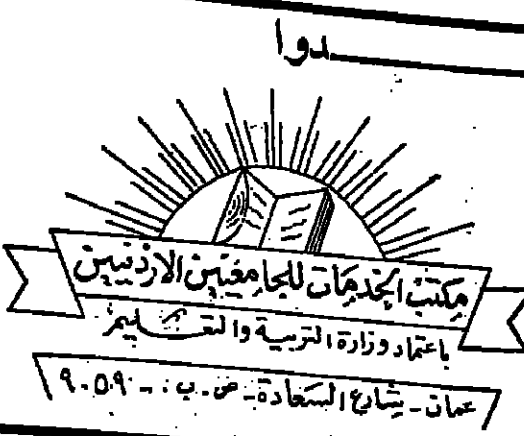 ـــدوا
مكتب الخدمات للجامعيين الاردنيين
باعتماد وزارة التربية والتعـــليم
عمان - شارع السعادة - ص. ب : - ٩٠٥٩